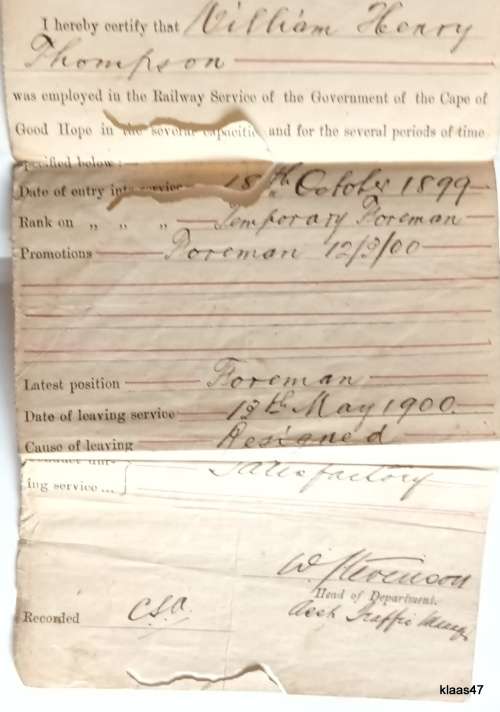 I hereby certify that William Henry
Thompson
was employed in the Railway Service of the Government of the Cape of
Good Hope in the several capacitie and for the several periods of time
specified below:—
Date of entry into service 18th October 1899
Rank on „ „ „ Temporary Foreman
Promotions Foreman 12/3/00
Latest position Foreman
Date of leaving service 13th May 1900.
Cause of leaving Resigned
ing service... Satisfactory
W. Stevenson
Head of Department.
Asst Traffic
Recorded
klaas47